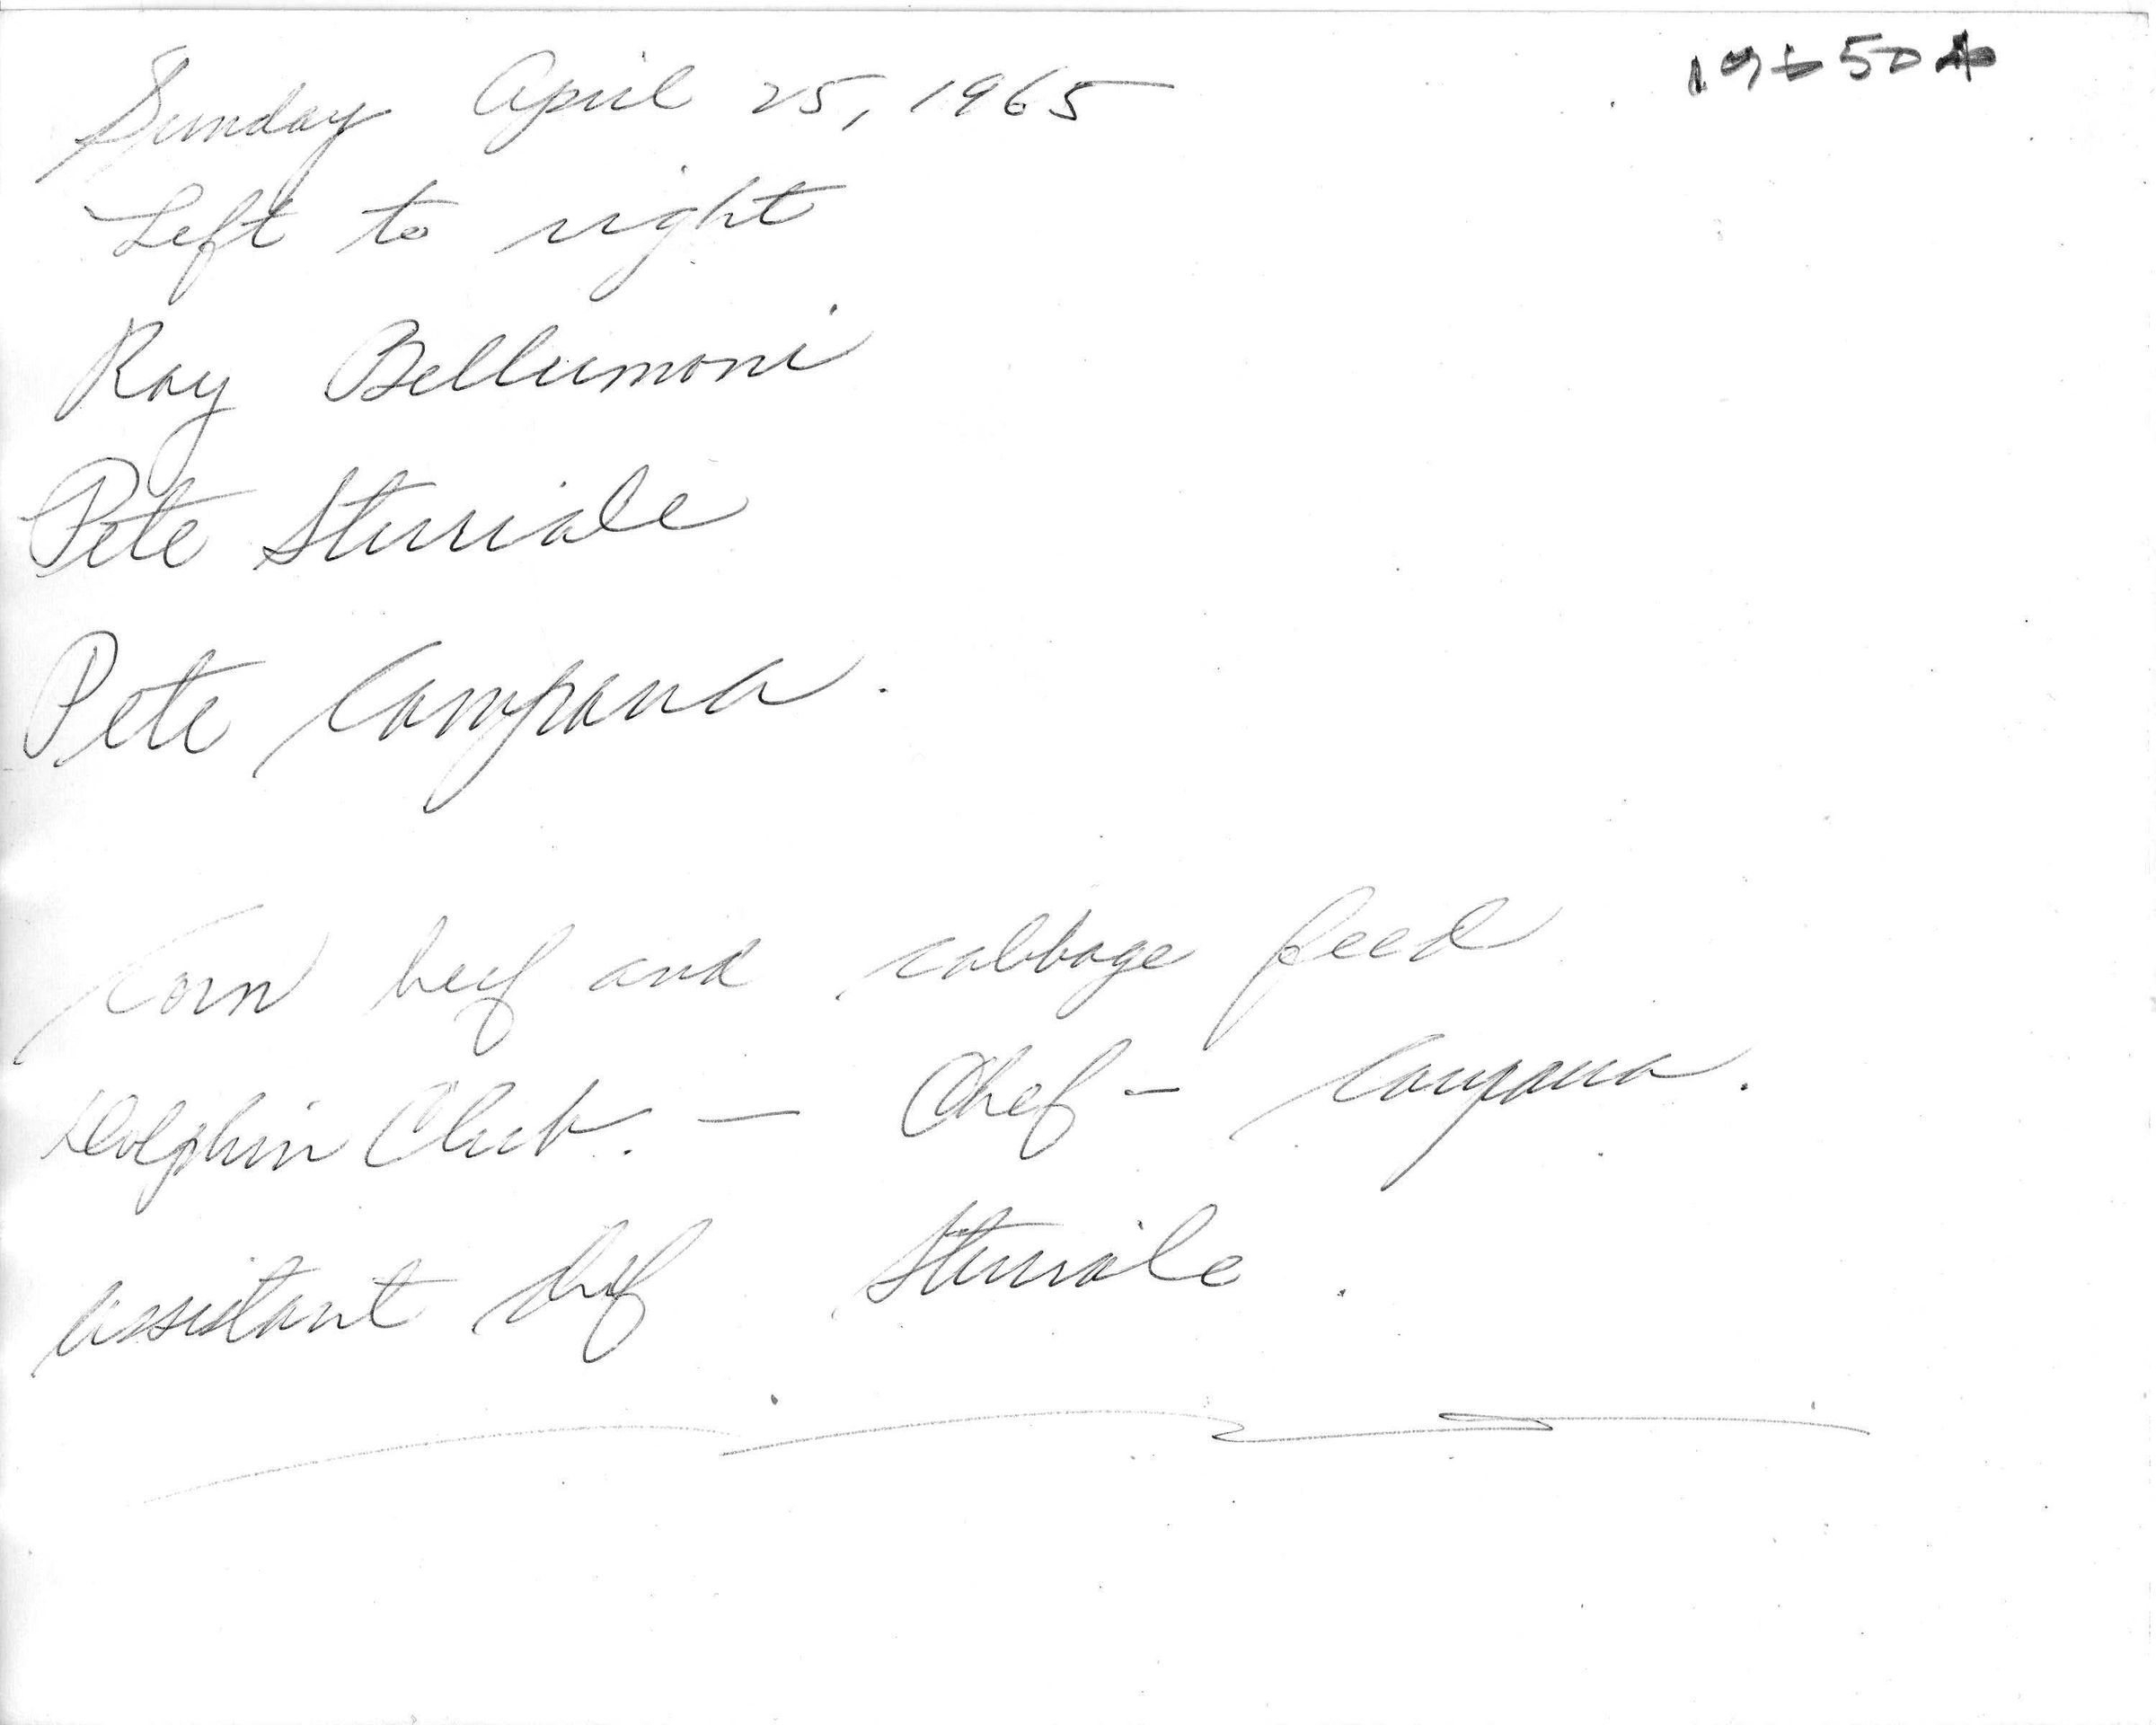 Sunday April 25, 1965
Left to right
Ray Bellumoni
Pete Sturiale
Pete Campana.
Corn beef and cabbage feed
Dolphin Club. — Chef - Campana.
assistant chef Sturiale.